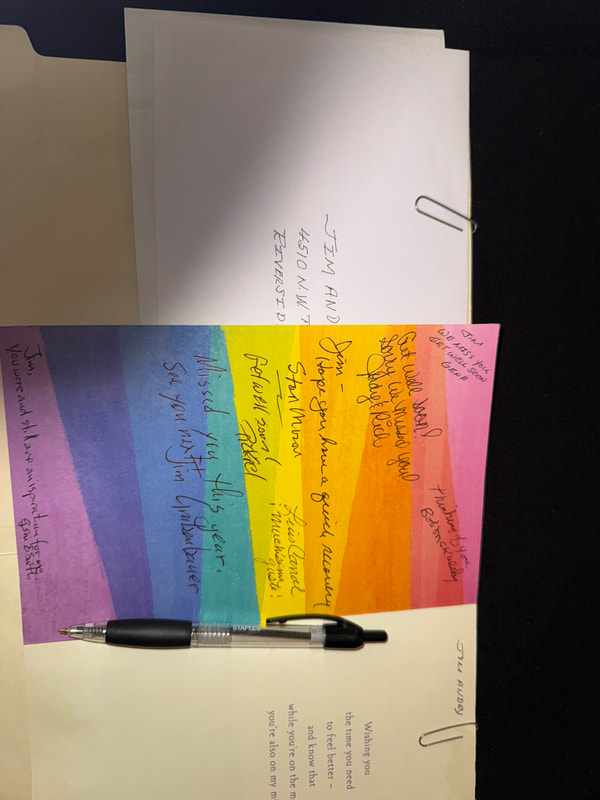 JIM AND
4510 N.W. 7
RIVERSID
JIM
WE MISS YOU
GET WELL SOON
GENE
Get well soon!
Sorry we missed you!
& Rich
Thinking of you,
Bob
Jim -
Hope you have a quick recovery
Stan
Get well soon!
Luis Canal
¡Muchísimo
gusto!
Missed you this year.
See you next!
Jim
Jim,
you were and still are an inspiration for me.
STAPLES
JIM
Wishing you
the time you need
to feel better –
and know that
while you're on the m
you're also on my m